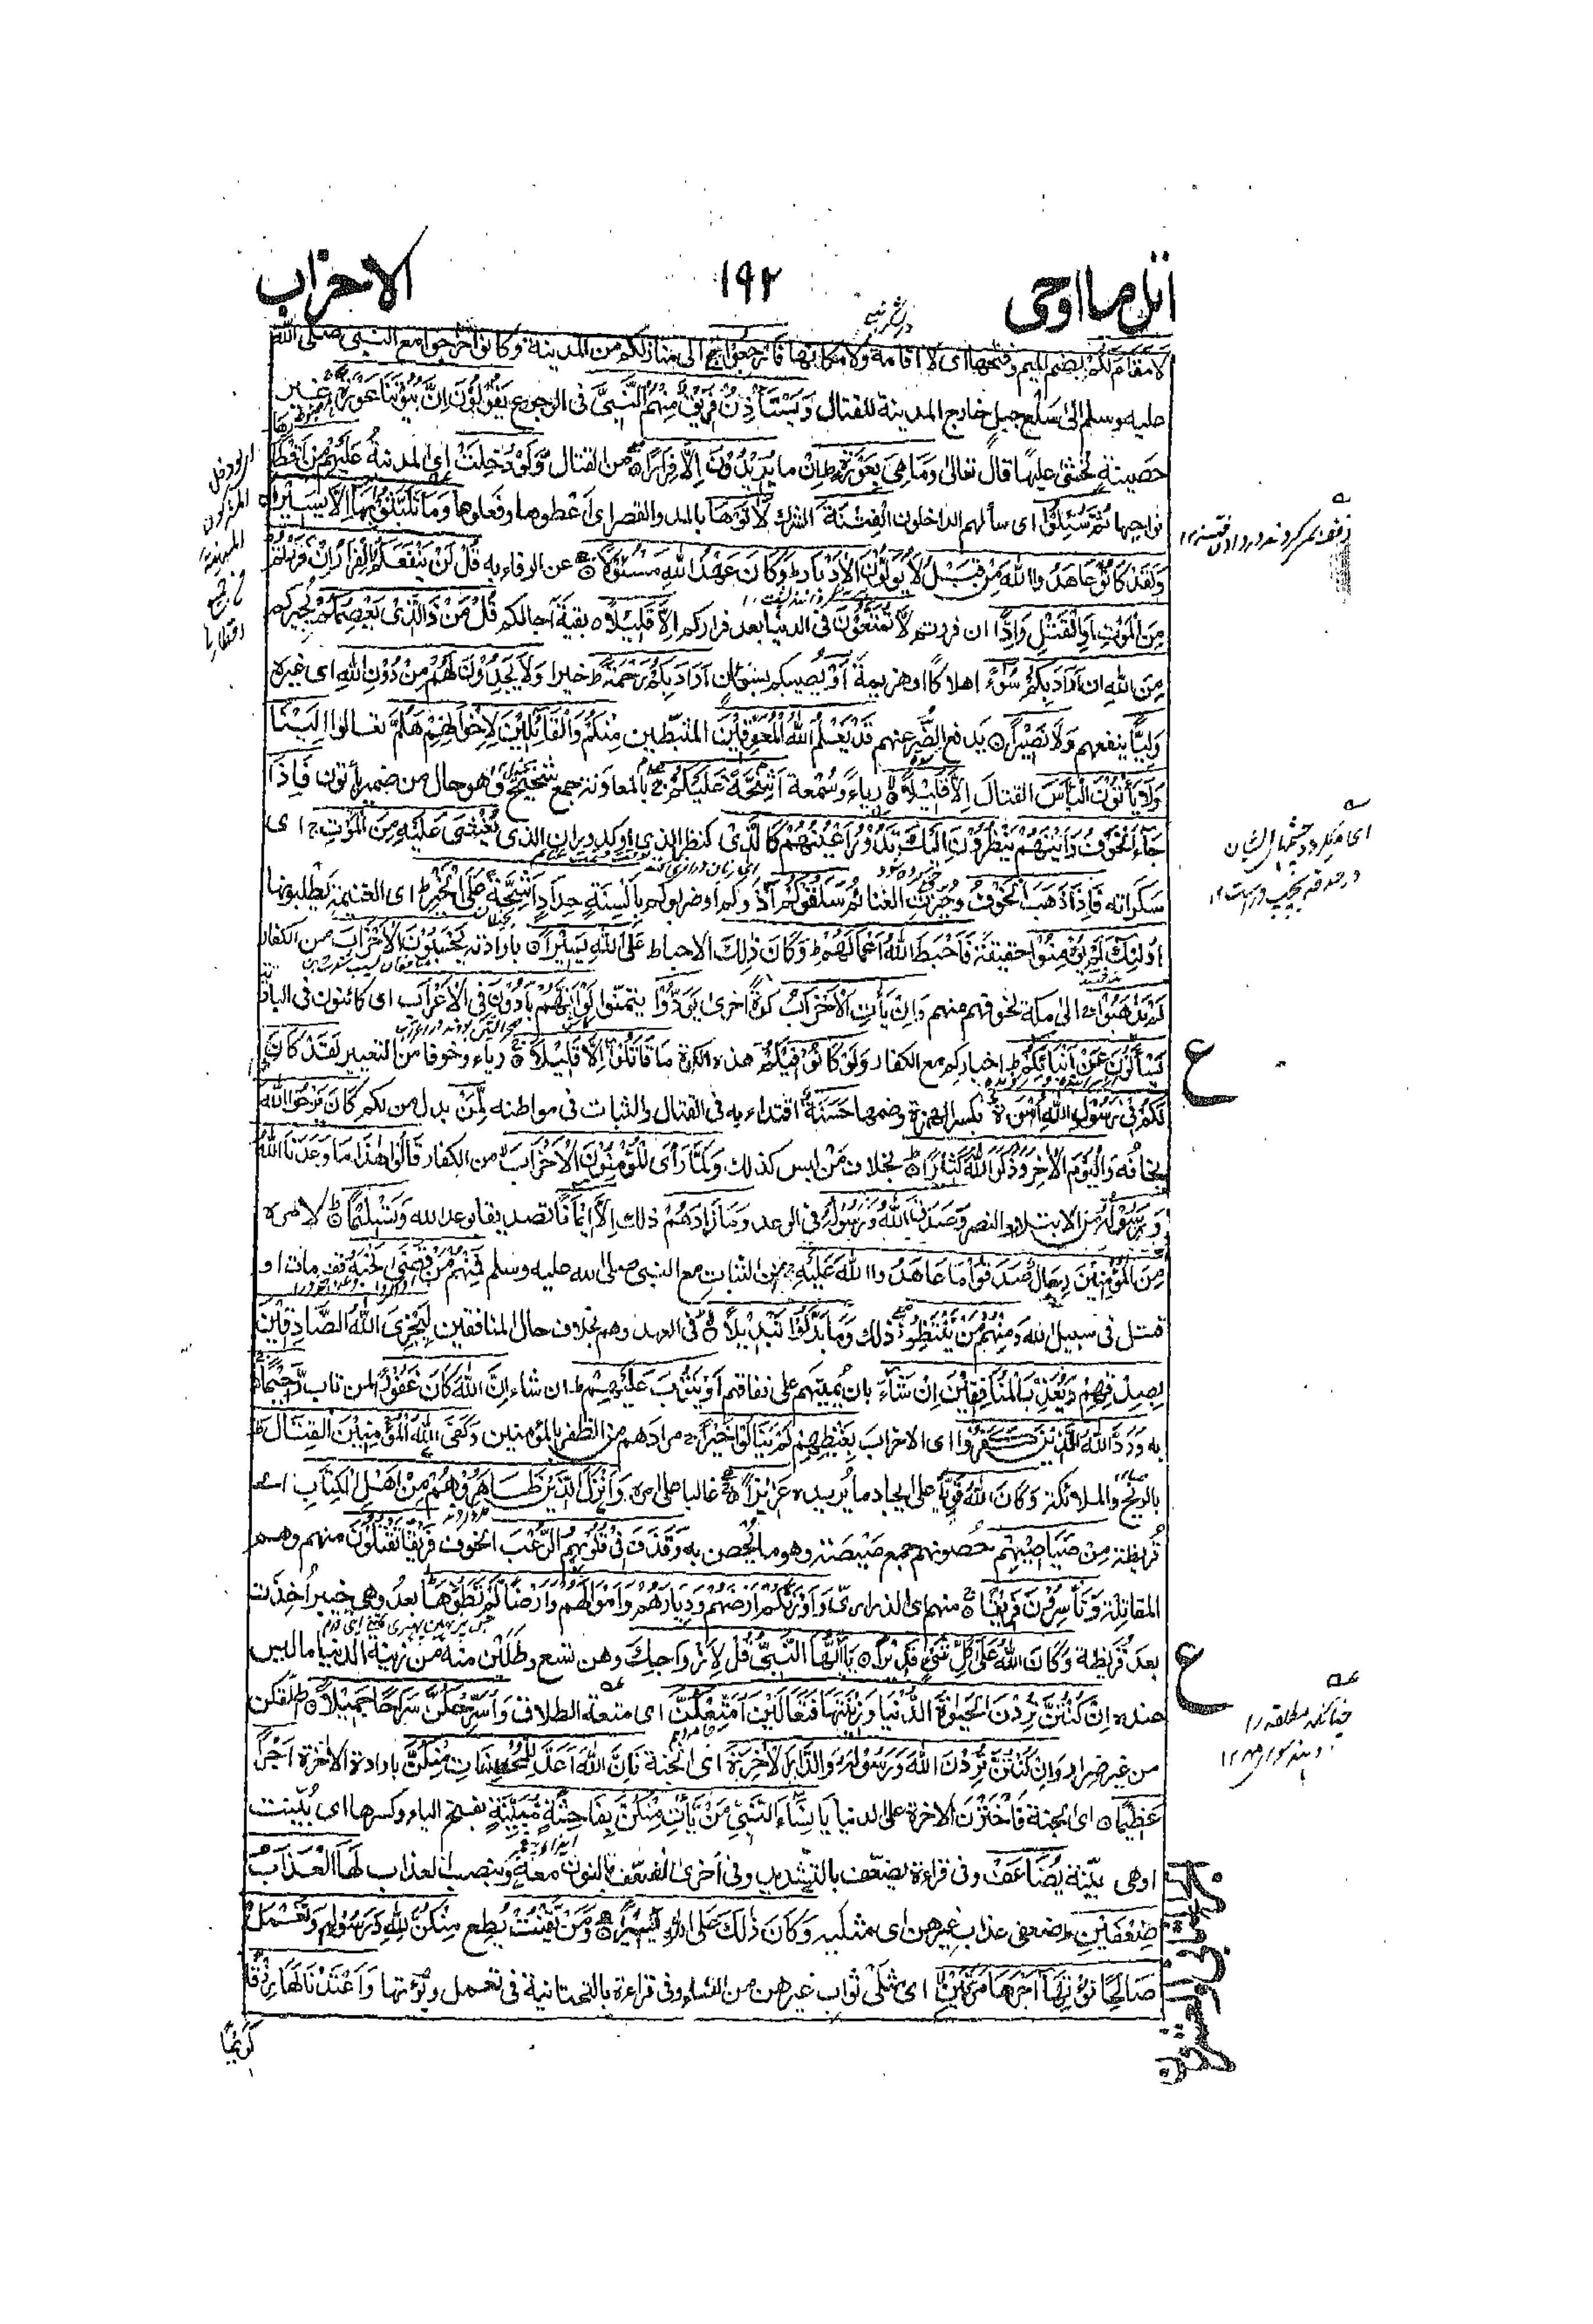 اتل ما اوحی
۱۹۲
الاحزاب
لَا مُقَامَ لَكُمْ بضم الميم وفتحها اى لا اقامة ولا مكانها فَارْجِعُوْا ج الى منازلكم من المدينة وكانوا خرجوا مع النبى صلى الله
عليه وسلم الى سلع جبل خارج المدينة للقتال وَيَسْتَأْذِنُ فَرِيْقٌ مِّنْهُمُ النَّبِيَّ فى الرجوع يَقُوْلُوْنَ اِنَّ بُيُوْتَنَا عَوْرَةٌ غير
حصينة يخشى عليها قال تعالى وَمَا هِيَ بِعَوْرَةٍ ط اِنْ ما يُّرِيْدُوْنَ اِلَّا فِرَارًا من القتال وَلَوْ دُخِلَتْ اى المدينة عَلَيْهِمْ مِّنْ اَقْطَا
نواحيها ثُمَّ سُئِلُوا اى سألهم الداخلون الْفِتْنَةَ الشرك لَاٰتَوْهَا بالمد والقصر اى اعطوها وفعلوها وَمَا تَلَبَّثُوْا بِهَا اِلَّا يَسِيْرًا
وَلَقَدْ كَانُوْا عَاهَدُوا اللهَ مِنْ قَبْلُ لَا يُوَلُّوْنَ الْاَدْبَارَ ط وَكَانَ عَهْدُ اللهِ مَسْئُوْلًا عن الوفاء به قُلْ لَّنْ يَّنْفَعَكُمُ الْفِرَارُ اِنْ فَرَرْتُمْ
مِّنَ الْمَوْتِ اَوِ الْقَتْلِ وَاِذًا ان فررتم لَّا تُمَتَّعُوْنَ فى الدنيا بعد فراركم اِلَّا قَلِيْلًا بقية آجالكم قُلْ مَنْ ذَا الَّذِيْ يَعْصِمُكُمْ يجيركم
مِّنَ اللهِ اِنْ اَرَادَ بِكُمْ سُوْءًا اهلاكا او هزيمة اَوْ يصيبكم بسوء ان اَرَادَ بِكُمْ رَحْمَةً ط خيرا وَلَا يَجِدُوْنَ لَهُمْ مِّنْ دُوْنِ اللهِ اى غيره
وَلِيًّا ينفعهم وَلَا نَصِيْرًا يدفع الضر عنهم قَدْ يَعْلَمُ اللهُ الْمُعَوِّقِيْنَ المثبطين مِنْكُمْ وَالْقَائِلِيْنَ لِاِخْوَانِهِمْ هَلُمَّ تعالوا اِلَيْنَا
وَلَا يَأْتُوْنَ الْبَأْسَ القتال اِلَّا قَلِيْلًا رياء وسمعة اَشِحَّةً عَلَيْكُمْ بالمعاونة جمع شحيح وهو حال من ضمير يأتون فَاِذَا
جَاءَ الْخَوْفُ رَاَيْتَهُمْ يَنْظُرُوْنَ اِلَيْكَ تَدُوْرُ اَعْيُنُهُمْ كَالَّذِيْ كنظر الذى او كدوران الذى يُغْشٰى عَلَيْهِ مِنَ الْمَوْتِ ج اى
سكراته فَاِذَا ذَهَبَ الْخَوْفُ وحيزت الغنائم سَلَقُوْكُمْ آذوكم او ضربوكم بِاَلْسِنَةٍ حِدَادٍ اَشِحَّةً عَلَى الْخَيْرِ ط اى الغنيمة يطلبونها
اُولٰئِكَ لَمْ يُؤْمِنُوْا حقيقة فَاَحْبَطَ اللهُ اَعْمَالَهُمْ ط وَكَانَ ذٰلِكَ الاحباط عَلَى اللهِ يَسِيْرًا بارادته يَحْسَبُوْنَ الْاَحْزَابَ من الكفار
لَمْ يَذْهَبُوْا ج الى مكة لخوفهم منهم وَاِنْ يَّأْتِ الْاَحْزَابُ كرة اخرى يَوَدُّوْا يتمنوا لَوْ اَنَّهُمْ بَادُوْنَ فِى الْاَعْرَابِ اى كائنون فى البادية
يَسْاَلُوْنَ عَنْ اَنْبَائِكُمْ ط اخباركم مع الكفار وَلَوْ كَانُوْا فِيْكُمْ هذه الكرة مَّا قَاتَلُوْا اِلَّا قَلِيْلًا رياء وخوفا من التعيير لَقَدْ كَانَ
لَكُمْ فِيْ رَسُوْلِ اللهِ اُسْوَةٌ بكسر الهمزة وضمها حَسَنَةٌ اقتداء به فى القتال والثبات فى مواطنه لِّمَنْ بدل من لكم كَانَ يَرْجُوا اللهَ
يخافه وَالْيَوْمَ الْاٰخِرَ وَذَكَرَ اللهَ كَثِيْرًا بخلاف من ليس كذلك وَلَمَّا رَاَى الْمُؤْمِنُوْنَ الْاَحْزَابَ من الكفار قَالُوْا هٰذَا مَا وَعَدَنَا اللهُ
وَرَسُوْلُهٗ من الابتلاء والنصر وَصَدَقَ اللهُ وَرَسُوْلُهٗ فى الوعد وَمَا زَادَهُمْ ذلك اِلَّا اِيْمَانًا تصديقا بوعد الله وَّتَسْلِيْمًا لامره
مِنَ الْمُؤْمِنِيْنَ رِجَالٌ صَدَقُوْا مَا عَاهَدُوا اللهَ عَلَيْهِ ج من الثبات مع النبى صلى الله عليه وسلم فَمِنْهُمْ مَّنْ قَضٰى نَحْبَهٗ مات او
قتل فى سبيل الله وَمِنْهُمْ مَّنْ يَّنْتَظِرُ ذلك وَمَا بَدَّلُوْا تَبْدِيْلًا فى العهد وهم بخلاف حال المنافقين لِيَجْزِيَ اللهُ الصَّادِقِيْنَ
بِصِدْقِهِمْ وَيُعَذِّبَ الْمُنَافِقِيْنَ اِنْ شَاءَ بان يميتهم على نفاقهم اَوْ يَتُوْبَ عَلَيْهِمْ ط ان شاء اِنَّ اللهَ كَانَ غَفُوْرًا لمن تاب رَّحِيْمًا
به وَرَدَّ اللهُ الَّذِيْنَ كَفَرُوْا اى الاحزاب بِغَيْظِهِمْ لَمْ يَنَالُوْا خَيْرًا مرادهم من الظفر بالمؤمنين وَكَفَى اللهُ الْمُؤْمِنِيْنَ الْقِتَالَ
بالريح والملائكة وَكَانَ اللهُ قَوِيًّا على ايجاد ما يريده عَزِيْزًا غالبا على امره وَاَنْزَلَ الَّذِيْنَ ظَاهَرُوْهُمْ مِّنْ اَهْلِ الْكِتَابِ اى
قريظة مِنْ صَيَاصِيْهِمْ حصونهم جمع صيصة وهو ما يتحصن به وَقَذَفَ فِيْ قُلُوْبِهِمُ الرُّعْبَ الخوف فَرِيْقًا تَقْتُلُوْنَ منهم وهم
المقاتلة وَتَأْسِرُوْنَ فَرِيْقًا منهم اى الذرارى وَاَوْرَثَكُمْ اَرْضَهُمْ وَدِيَارَهُمْ وَاَمْوَالَهُمْ وَاَرْضًا لَّمْ تَطَئُوْهَا بعد وهى خيبر اخذت
بعد قريظة وَكَانَ اللهُ عَلٰى كُلِّ شَيْءٍ قَدِيْرًا يَا اَيُّهَا النَّبِيُّ قُلْ لِّاَزْوَاجِكَ وهن تسع وطلبن منه من زينة الدنيا ما ليس
عنده اِنْ كُنْتُنَّ تُرِدْنَ الْحَيٰوةَ الدُّنْيَا وَزِيْنَتَهَا فَتَعَالَيْنَ اُمَتِّعْكُنَّ اى متعة الطلاق وَاُسَرِّحْكُنَّ سَرَاحًا جَمِيْلًا اطلقكن
من غير ضرار وَاِنْ كُنْتُنَّ تُرِدْنَ اللهَ وَرَسُوْلَهٗ وَالدَّارَ الْاٰخِرَةَ اى الجنة فَاِنَّ اللهَ اَعَدَّ لِلْمُحْسِنَاتِ مِنْكُنَّ بارادة الاخرة اَجْرًا
عَظِيْمًا اى الجنة فاخترن الاخرة على الدنيا يَا نِسَاءَ النَّبِيِّ مَنْ يَّأْتِ مِنْكُنَّ بِفَاحِشَةٍ مُّبَيِّنَةٍ بفتح الياء وكسرها اى بينت
او هى بينة يُّضَاعَفْ وفى قراءة يضعف بالتشديد وفى اخرى نضعف بالنون معه ونصب العذاب لَهَا الْعَذَابُ
ضِعْفَيْنِ ط ضعفى عذاب غيرهن اى مثليه وَكَانَ ذٰلِكَ عَلَى اللهِ يَسِيْرًا وَمَنْ يَّقْنُتْ يطع مِنْكُنَّ لِلّٰهِ وَرَسُوْلِهٖ وَتَعْمَلْ
صَالِحًا نُّؤْتِهَا اَجْرَهَا مَرَّتَيْنِ اى مثلى ثواب غيرهن من النساء وفى قراءة بالتحتانية فى تعمل ونؤتها وَاَعْتَدْنَا لَهَا رِزْقًا
كَرِيْمًا
ع
ع